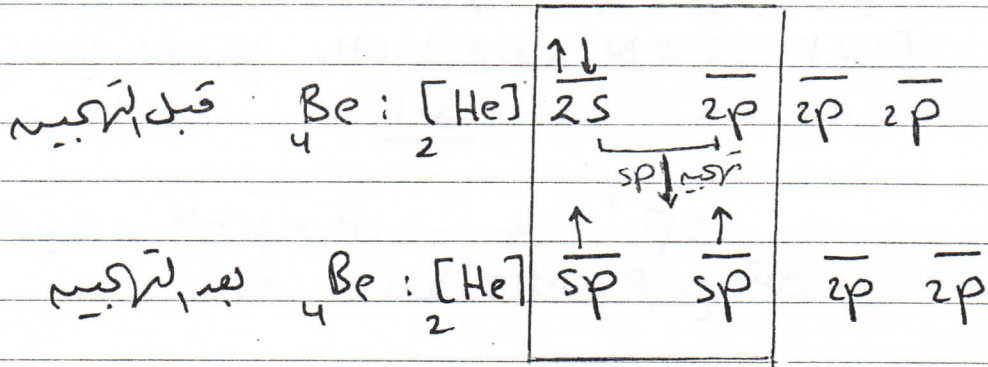 قبل التهجين ₄Be : [₂He] ↑↓ 2s 2p 2p 2p
تهجين sp ↓
بعد التهجين ₄Be : [₂He] ↑ sp ↑ sp 2p 2p